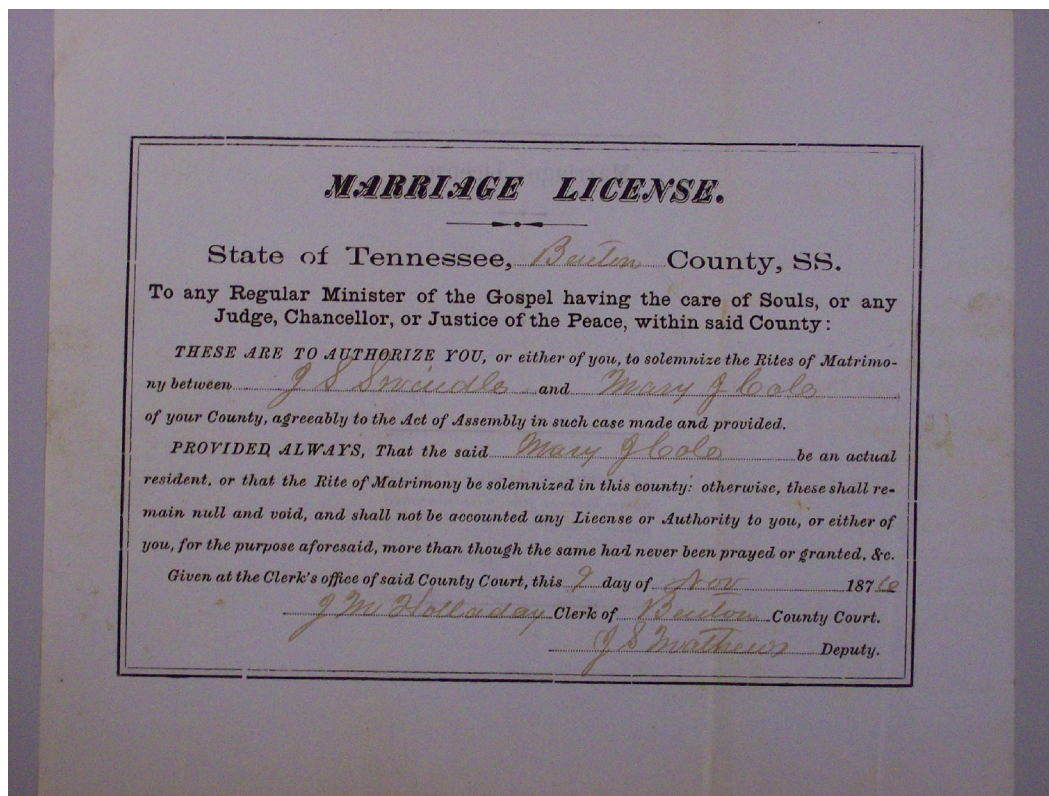 MARRIAGE LICENSE.
State of Tennessee, Benton County, SS.
To any Regular Minister of the Gospel having the care of Souls, or any
Judge, Chancellor, or Justice of the Peace, within said County:
THESE ARE TO AUTHORIZE YOU, or either of you, to solemnize the Rites of Matrimo-
ny between J S Swindle and Mary J Cole
of your County, agreeably to the Act of Assembly in such case made and provided.
PROVIDED, ALWAYS, That the said Mary J Cole be an actual
resident, or that the Rite of Matrimony be solemnized in this county: otherwise, these shall re-
main null and void, and shall not be accounted any License or Authority to you, or either of
you, for the purpose aforesaid, more than though the same had never been prayed or granted, &c.
Given at the Clerk's office of said County Court, this 9 day of Nov 1876
J M Holladay Clerk of Benton County Court.
J S Mathews Deputy.